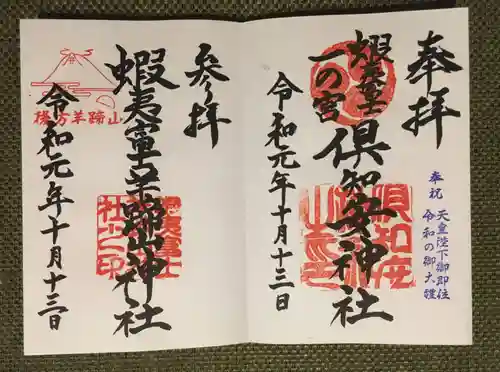 奉拝
奉祝 天皇陛下御即位
令和の御大禮
蝦夷富士
一の宮
倶知安神社
令和元年十月十三日
参拝
蝦夷富士羊蹄山神社
後方羊蹄山
令和元年十月十三日